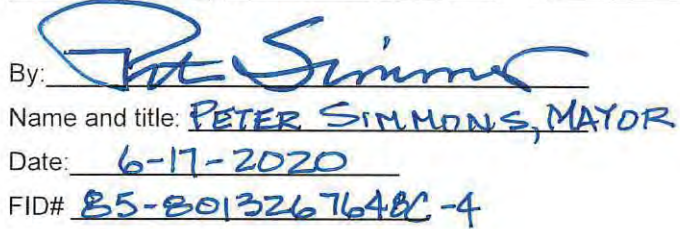 By: Pete Simmons
Name and title: PETER SIMMONS, MAYOR
Date: 6-17-2020
FID# 85-8013267648C-4